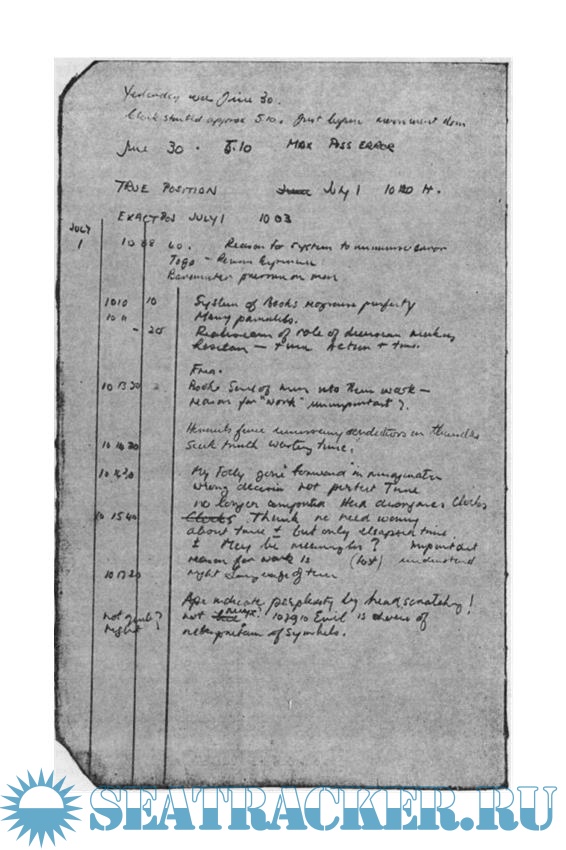 Yesterday was June 30.
Clock started approx 5.10. Just before movement down
June 30 . 5.10 MAX POSS ERROR
TRUE POSITION June July 1 10 20 H.
EXACT POS JULY 1 10 03
JULY
1 10 08 40. Reason for system to minimize error
To go –
Barometer pressure on
1010 10 System of Books perfectly
10 11 Many parallels.
– 20 Realization of role of decision making
Hesitan – time Action + time.
10 13 20 2. Books Soul of men into their work –
reason for "work" unimportant?.
10 14 20 Seek truth wasting time.
My folly gone "forward" in imagination
wrong decision not perfect Time
no longer computed Had disorganised Clocks
10 15 40 Clocks Think no need worry
about time ± but only elapsed time
± May be meaningless? Important
reason for work is (lost) understand
10 17 20 right
Ape indicate perplexity by head scratching!
not quite? not 102910 Evil is choice of
right interpretation of symbols.
SEATRACKER.RU